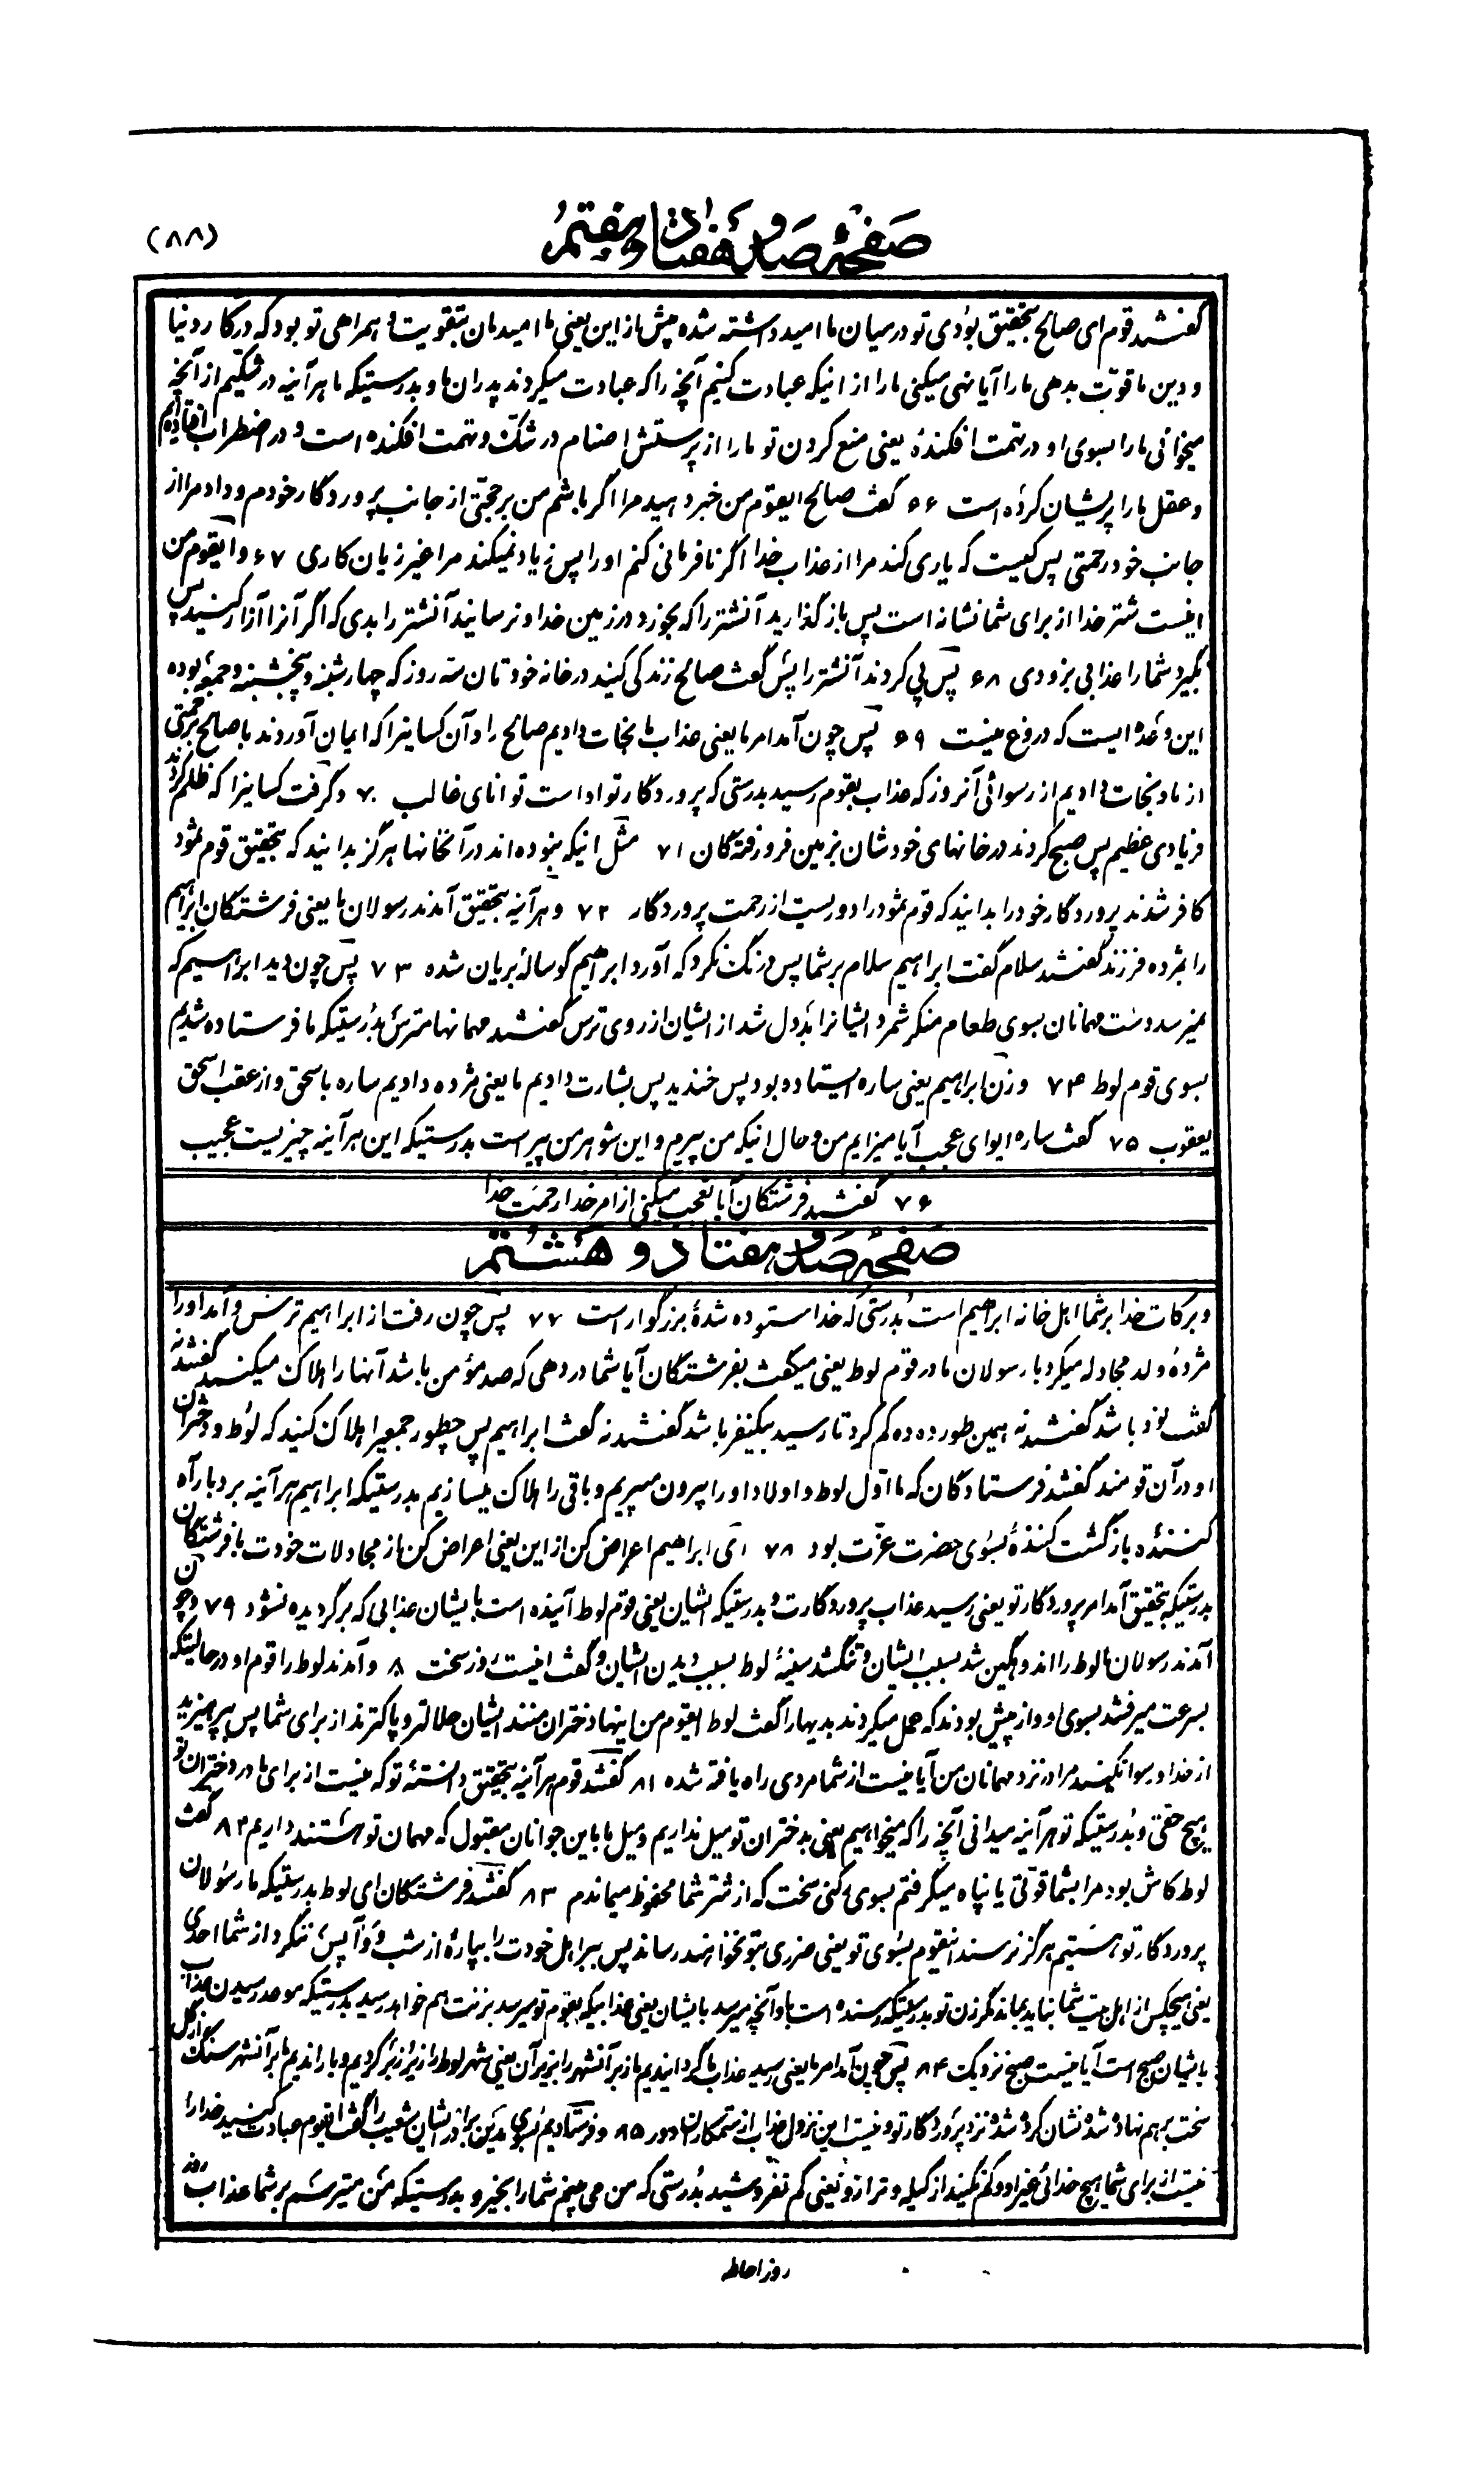 صفحهٔ صد و هفتاد و هفتم
(۸۸)
گفتند قوم ای صالح بتحقیق بودی تو در میان ما امید داشته شده پیش از این یعنی ما امیدمان بتقویت و همراهی تو بود که در کار دنیا
و دین ما قوّت بدهی ما را آیا نهی میکنی ما را از اینکه عبادت کنیم آنچه را که عبادت میکردند پدران ما و بدرستیکه ما هر آینه در شکّیم از آنچه
میخوانی ما را بسوی او در تهمت افکندهٔ یعنی منع کردن تو ما را از پرستش اصنام در شکّ و تهمت افکنده است و در اضطراب افتاده‌ایم
و عقل ما را پریشان کرده است ۶۶ گفت صالح ایقوم من خبر دهید مرا اگر باشم من بر حجّتی از جانب پروردگار خودم و داد مرا از
جانب خود رحمتی پس کیست که یاری کند مرا از عذاب خدا اگر نافرمانی کنم او را پس زیاد نمیکند مرا غیر زیان کاری ۶۷ و ایقوم من
اینست شتر خدا از برای شما نشانه است پس باز گذارید آنشتر را که بخورد در زمین خدا و نرسانید آنشتر را بدی که اگر آنرا آزار کنید پس
بگیرد شما را عذابی بزودی ۶۸ پس پی کردند آنشتر را پس گفت صالح زندگی کنید در خانه خودتان سه روز که چهارشنبه و پنجشنبه و جمعه بوده
این وعده ایست که دروغ نیست ۶۹ پس چون آمد امر ما یعنی عذاب ما نجات دادیم صالح را و آن کسانیرا که ایمان آوردند با صالح برحمتی
از ما و نجات دادیم از رسوائی آنروز که عذاب بقوم رسید بدرستی که پروردگار تو او است توانای غالب ۷۰ و گرفت کسانیرا که ظلم کردند
فریادی عظیم پس صبح کردند در خانهای خودشان بزمین فرو رفته‌گان ۷۱ مثل اینکه نبوده‌اند در آنخانها هرگز بدانید که بتحقیق قوم ثمود
کافر شدند پروردگار خود را بدانید که قوم ثمود را دوریست از رحمت پروردگار ۷۲ و هر آینه بتحقیق آمدند رسولان ما یعنی فرشتگان ابراهیم
را بمژده فرزند گفتند سلام گفت ابراهیم سلام بر شما پس درنگ نکرد که آورد ابراهیم گوسالهٔ بریان شده ۷۳ پس چون دید ابراهیم که
نمیرسد دست مهمانان بسوی طعام منکر شمرد ایشانرا بدل شد از ایشان از روی ترس گفتند مهمانها مترس بدرستیکه ما فرستاده شدیم
بسوی قوم لوط ۷۴ و زن ابراهیم یعنی ساره ایستاده بود پس خندید پس بشارت دادیم ما یعنی مژده دادیم ساره باسحق و از عقب اسحق
یعقوب ۷۵ گفت ساره ایوای عجب آیا میزایم من و حال اینکه من پیرم و این شوهر من پیر است بدرستیکه این هر آینه چیزیست عجیب
۷۶ گفتند فرشتگان آیا تعجب میکنی از امر خدا رحمت خدا
صفحهٔ صد و هفتاد و هشتم
و برکات خدا بر شما اهل خانه ابراهیم است بدرستی که خدا ستوده شدهٔ بزرگوار است ۷۷ پس چون رفت از ابراهیم ترس و آمد او را
مژدهٔ ولد مجادله میکرد با رسولان ما در قوم لوط یعنی میگفت بفرشتگان آیا شما در دهی که صد مؤمن باشد آنها را هلاک میکنید گفتند نه
گفت نود باشد گفتند نه همین طور ده ده کم کرد تا رسید بیکنفر باشد گفتند نه گفت ابراهیم پس چطور جمعیرا هلاک کنید که لوط و دختران
او در آن قومند گفتند فرستادگان که ما اوّل لوط و اولاد او را بیرون میبریم و باقی را هلاک میسازیم بدرستیکه ابراهیم هر آینه بردبار آه
کنندهٔ بازگشت کنندهٔ بسوی حضرت عزّت بود ۷۸ ای ابراهیم اعراض کن از این یعنی اعراض کن از مجادلات خودت با فرشتگان
بدرستیکه بتحقیق آمد امر پروردگار تو یعنی رسید عذاب پروردگارت و بدرستیکه ایشان یعنی قوم لوط آینده است بایشان عذابی که برگردیده نشود ۷۹ و چون
آمدند رسولان ما لوط را اندوهگین شد بسبب ایشان و تنگ شد سینهٔ لوط بسبب دیدن ایشان و گفت اینست روز سخت ۸۰ و آمدند لوط را قوم او در حالتیکه
بسرعت میرفتند بسوی او و از پیش بودند که عمل میکردند بدیها را گفت لوط ایقوم من اینها دختران منند ایشان حلالتر و پاکترند از برای شما پس بپرهیزید
از خدا و رسوا نکنید مرا در نزد مهمانان من آیا نیست از شما مردی راه یافته شده ۸۱ گفتند قوم هر آینه بتحقیق دانستهٔ تو که نیست از برای ما در دختران تو
هیچ حقی و بدرستیکه تو هر آینه میدانی آنچه را که میخواهیم یعنی بدختران تو میل نداریم و میل ما باین جوانان مقبول که مهمان تو هستند داریم ۸۲ گفت
لوط کاش بود مرا بشما قوّتی یا پناه میگرفتم بسوی رکنی سخت که از شرّ شما محفوظ میماندم ۸۳ گفتند فرشتگان ای لوط بدرستیکه ما رسولان
پروردگار تو هستیم هرگز نرسند اینقوم بسوی تو یعنی ضرری بتو نخواهند رساند پس ببر اهل خودت را بپارهٔ از شب و وآپس ننگرد از شما احدی
یعنی هیچکس از اهل بیت شما نباید بماند مگر زن تو بدرستیکه رسنده است باو آنچه میرسد بایشان یعنی عذابیکه بقوم تو میرسد بزنت هم خواهد رسید بدرستیکه موعد رسیدن عذاب
بایشان صبح است آیا نیست صبح نزدیک ۸۴ پس چون آمد امر ما یعنی رسید عذاب ما گردانیدیم ما زبر آنشهر را بزیر آن یعنی شهر لوط را زیر و زبر کردیم و باراندیم ما بر آنشهر سنگ از گل
سخت بر هم نهاده شده نشان کرده شده نزد پروردگار تو و نیست این نزول عذاب از ستمکاران دور ۸۵ و فرستادیم بسوی مدین برادر ایشان شعیب را گفت ایقوم عبادت کنید خدا را
نیست از برای شما هیچ خدائی غیر او و کم نکنید از کیله و ترازو یعنی کم نفروشید بدرستی که من می بینم شما را بخیر و بدرستیکه من میترسم بر شما عذاب روز
روز احاطه